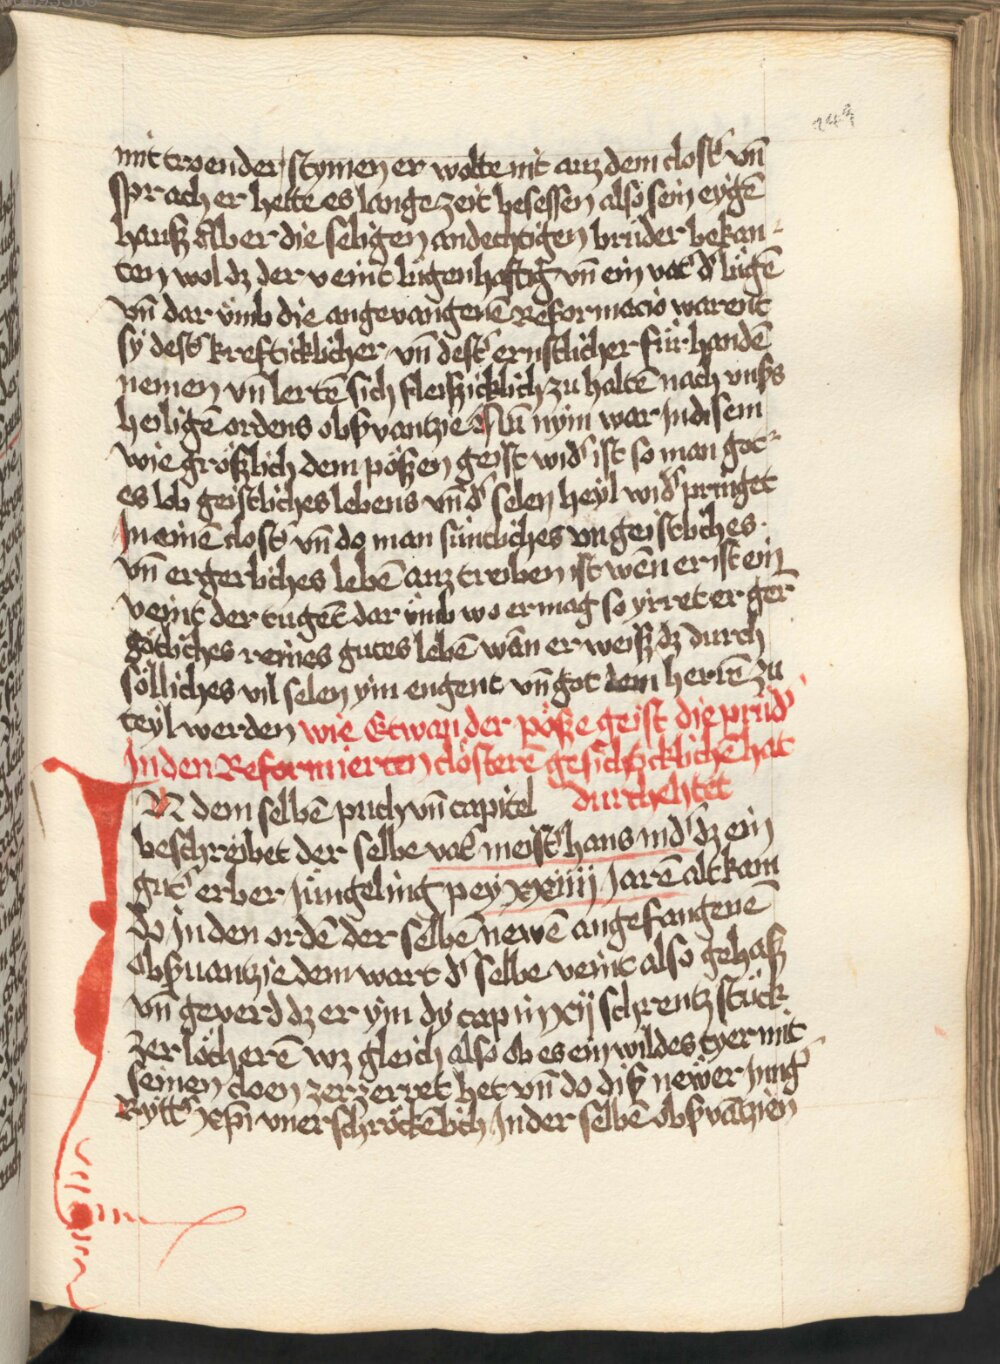 mit troender stymen er wolte nit auz dem clost' vn̄
sprach er hette es lange zeit besessen also sein eygē
hausz alber die seligen andechtigen brüder bekan-
ten wol dz der veint lugenhaftig vn̄ ein vat' d' lügē
vn̄ dar vmb die angevangenē Reformacio warent
sy dest' kreftticklicher vn̄ dest' ernstlicher für handē
nemen vn̄ lertē sich fleiszicklich zu haltē nach vnsz's
heiligē ordens obs'vantzie Nu nym war In disem
wie gröszlich dem pöszen geist wid' ist so man got-
es lob geistliches lebens vn̄ d' selen heyl wid' pringet
In einē clost' vn̄ do man süntliches vngeistliches
vn̄ ergerliches lebē auz treiben ist wēn er ist ein
veint der tugēt dar vmb wo er mag so yrret er gern
götliches reines gutes lebē wān er weisz dz durch
sölliches vil selen ym engent vn̄ got dem herrē zu
teyl werden wie Etwan der pösze geist die prüd'
In den Reformierten clösterē gesichticklichē hat
durchehtet
IN dem selbē puch vn̄ capitel
beschreibet der selbe vat' meist' hans nid' dz ein
gut' erber Jüngeling pey xxiiij Jarē alt kam
do In den ordē der selbē newē angefangenē
obs'uantzie dem wart d' selbe veint also gehasz
vn̄ geverd dz er ym dy cap in xij schrentz stück
zerlöcherē wz gleich also ob es ein wildes tyer mit
seinen cloen zerzerret het vn̄ do disz newer Jung'
Rytt' xp̄i vnerschröckēlich In der selbē obs'vātzien